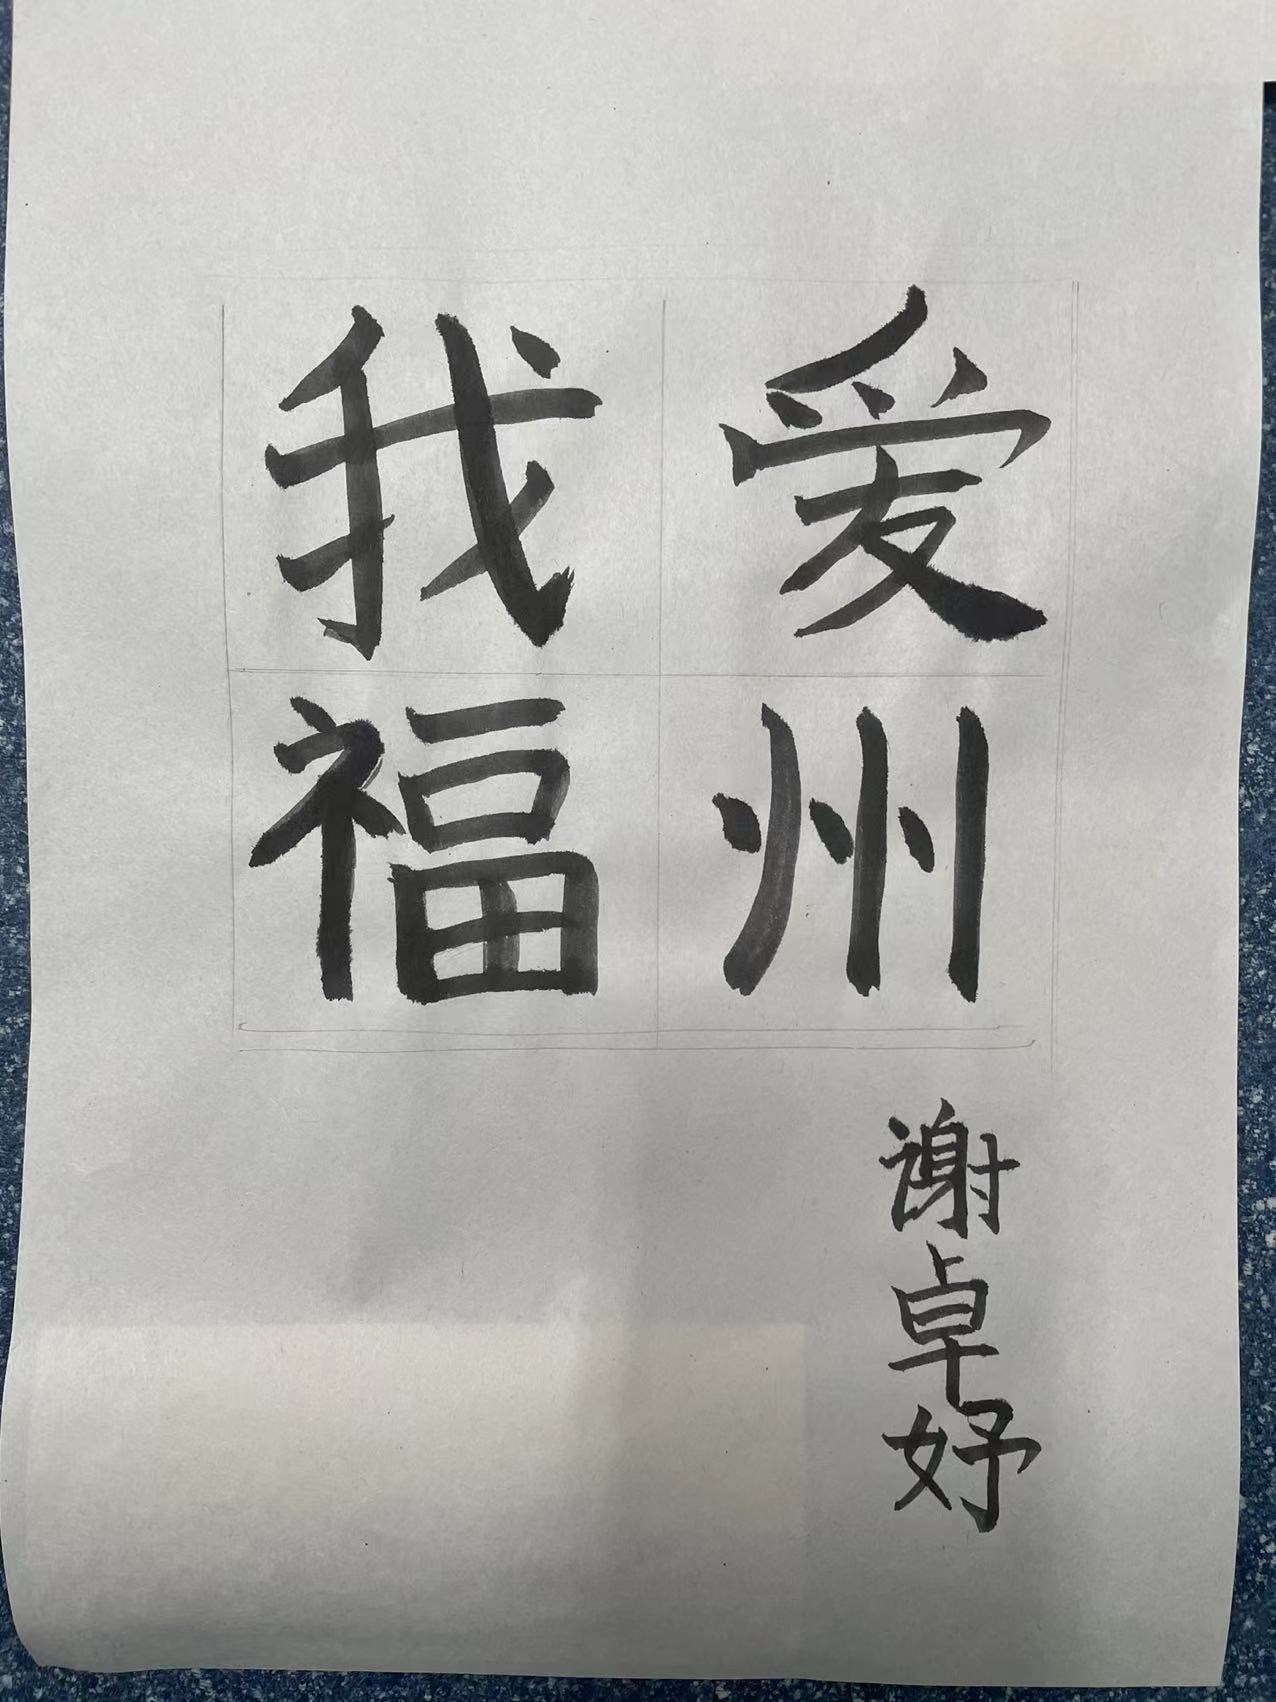 我爱
福州
谢卓妤